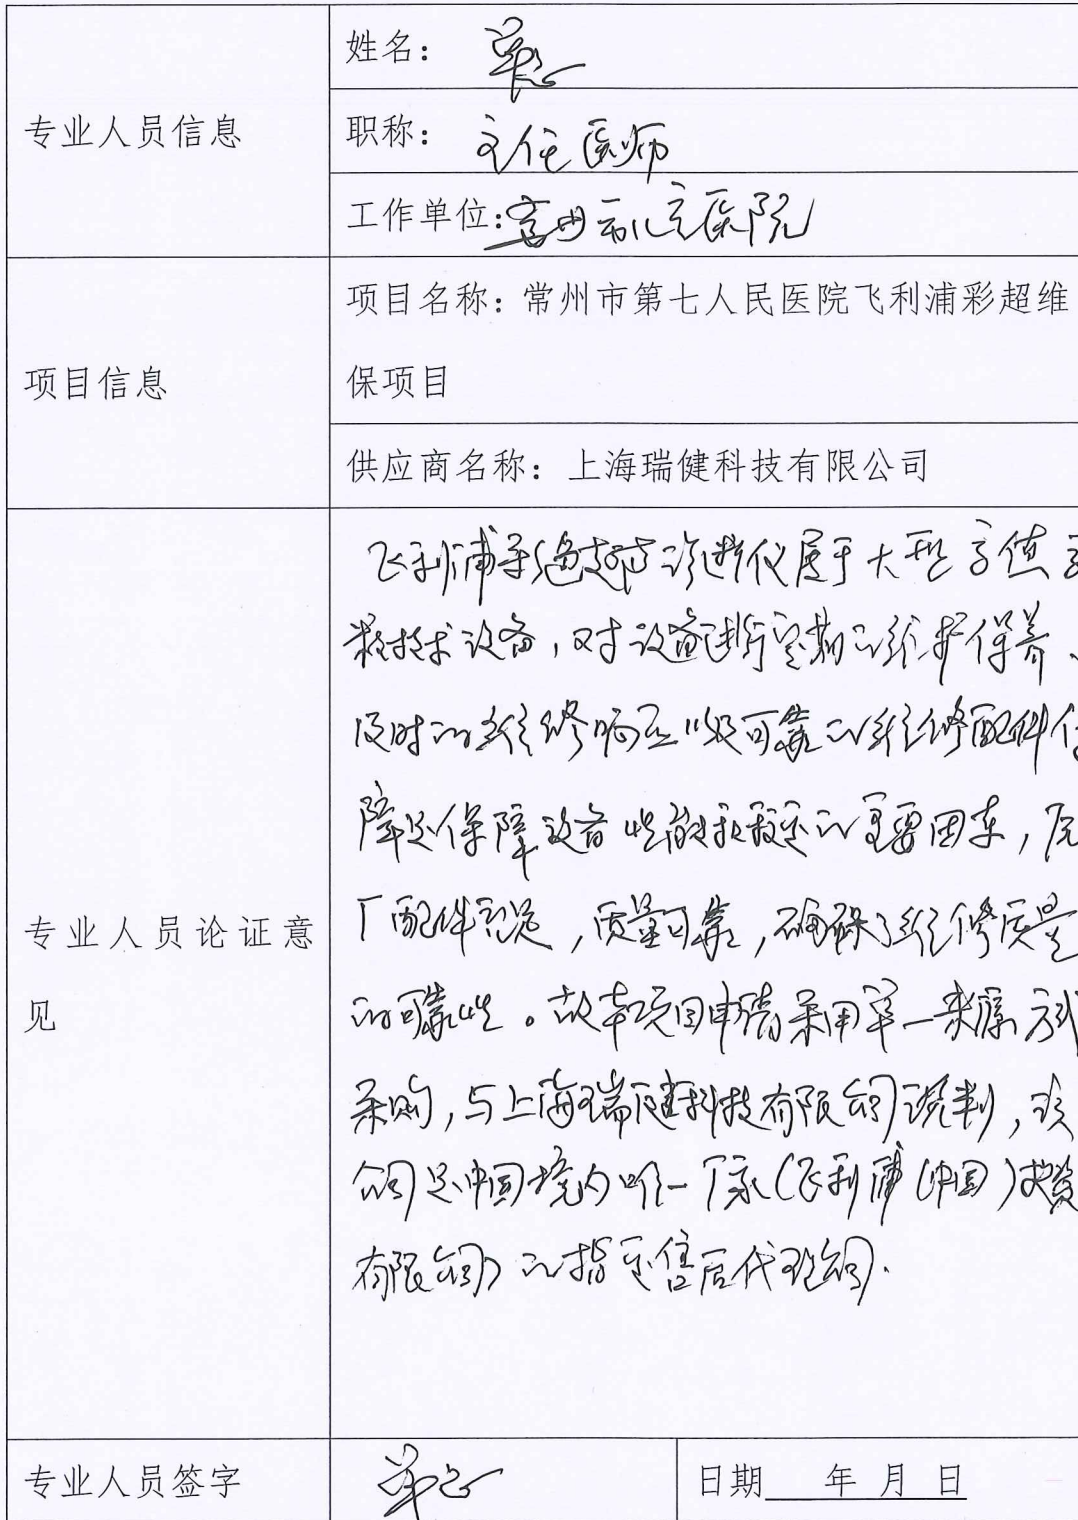 专业人员信息
姓名：
职称： 主任医师
工作单位： 医院
项目信息
项目名称：常州市第七人民医院飞利浦彩超维
保项目
供应商名称：上海瑞健科技有限公司
专业人员论证意
见
飞利浦彩色超声诊断仪属于大型高值高
精技术设备，对设备进行定期的维护保养、
及时的维修响应以及可靠的维修配件保
障是保障设备性能稳定的重要因素，原
厂配件 ，质量可靠，确保了维修质量
的可靠性。故本项目申请采用单一来源方式
采购，与上海瑞健科技有限公司谈判，该
公司是中国境内唯一厂家(飞利浦(中国)投资
有限公司)的指定售后代理公司.
专业人员签字
日期 年 月 日